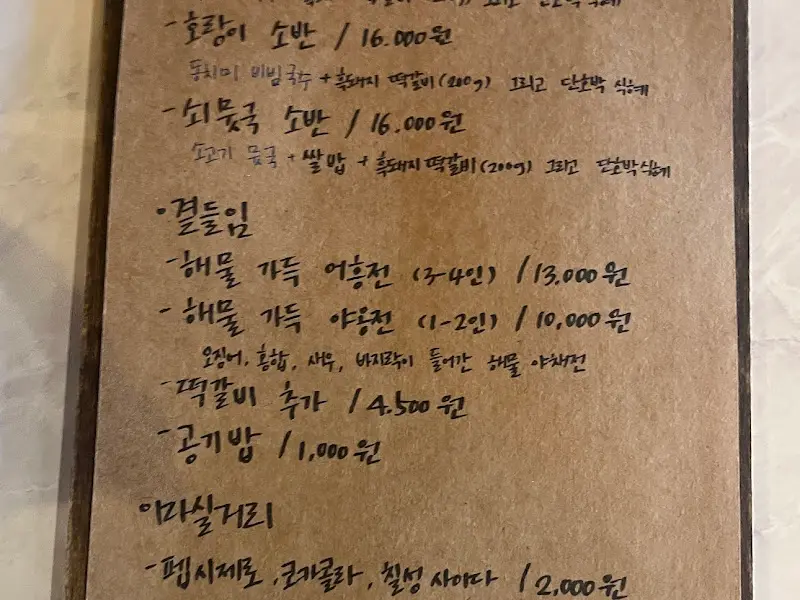 그리고 단호박 식혜
- 호랑이 소반 / 16.000원
동치미 비빔국수 + 흑돼지 떡갈비(200g) 그리고 단호박 식혜
- 쇠뭇국 소반 / 16.000원
소고기 뭇국 + 쌀밥 + 흑돼지 떡갈비(200g) 그리고 단호박식혜
• 곁들임
- 해물 가득 어흥전 (3-4인) / 13,000원
- 해물 가득 야옹전 (1-2인) / 10,000원
오징어, 홍합, 새우, 바지락이 들어간 해물 야채전
- 떡갈비 추가 / 4.500원
- 공기밥 / 1,000원
마실거리
- 펩시제로, 코카콜라, 칠성사이다 / 2,000원